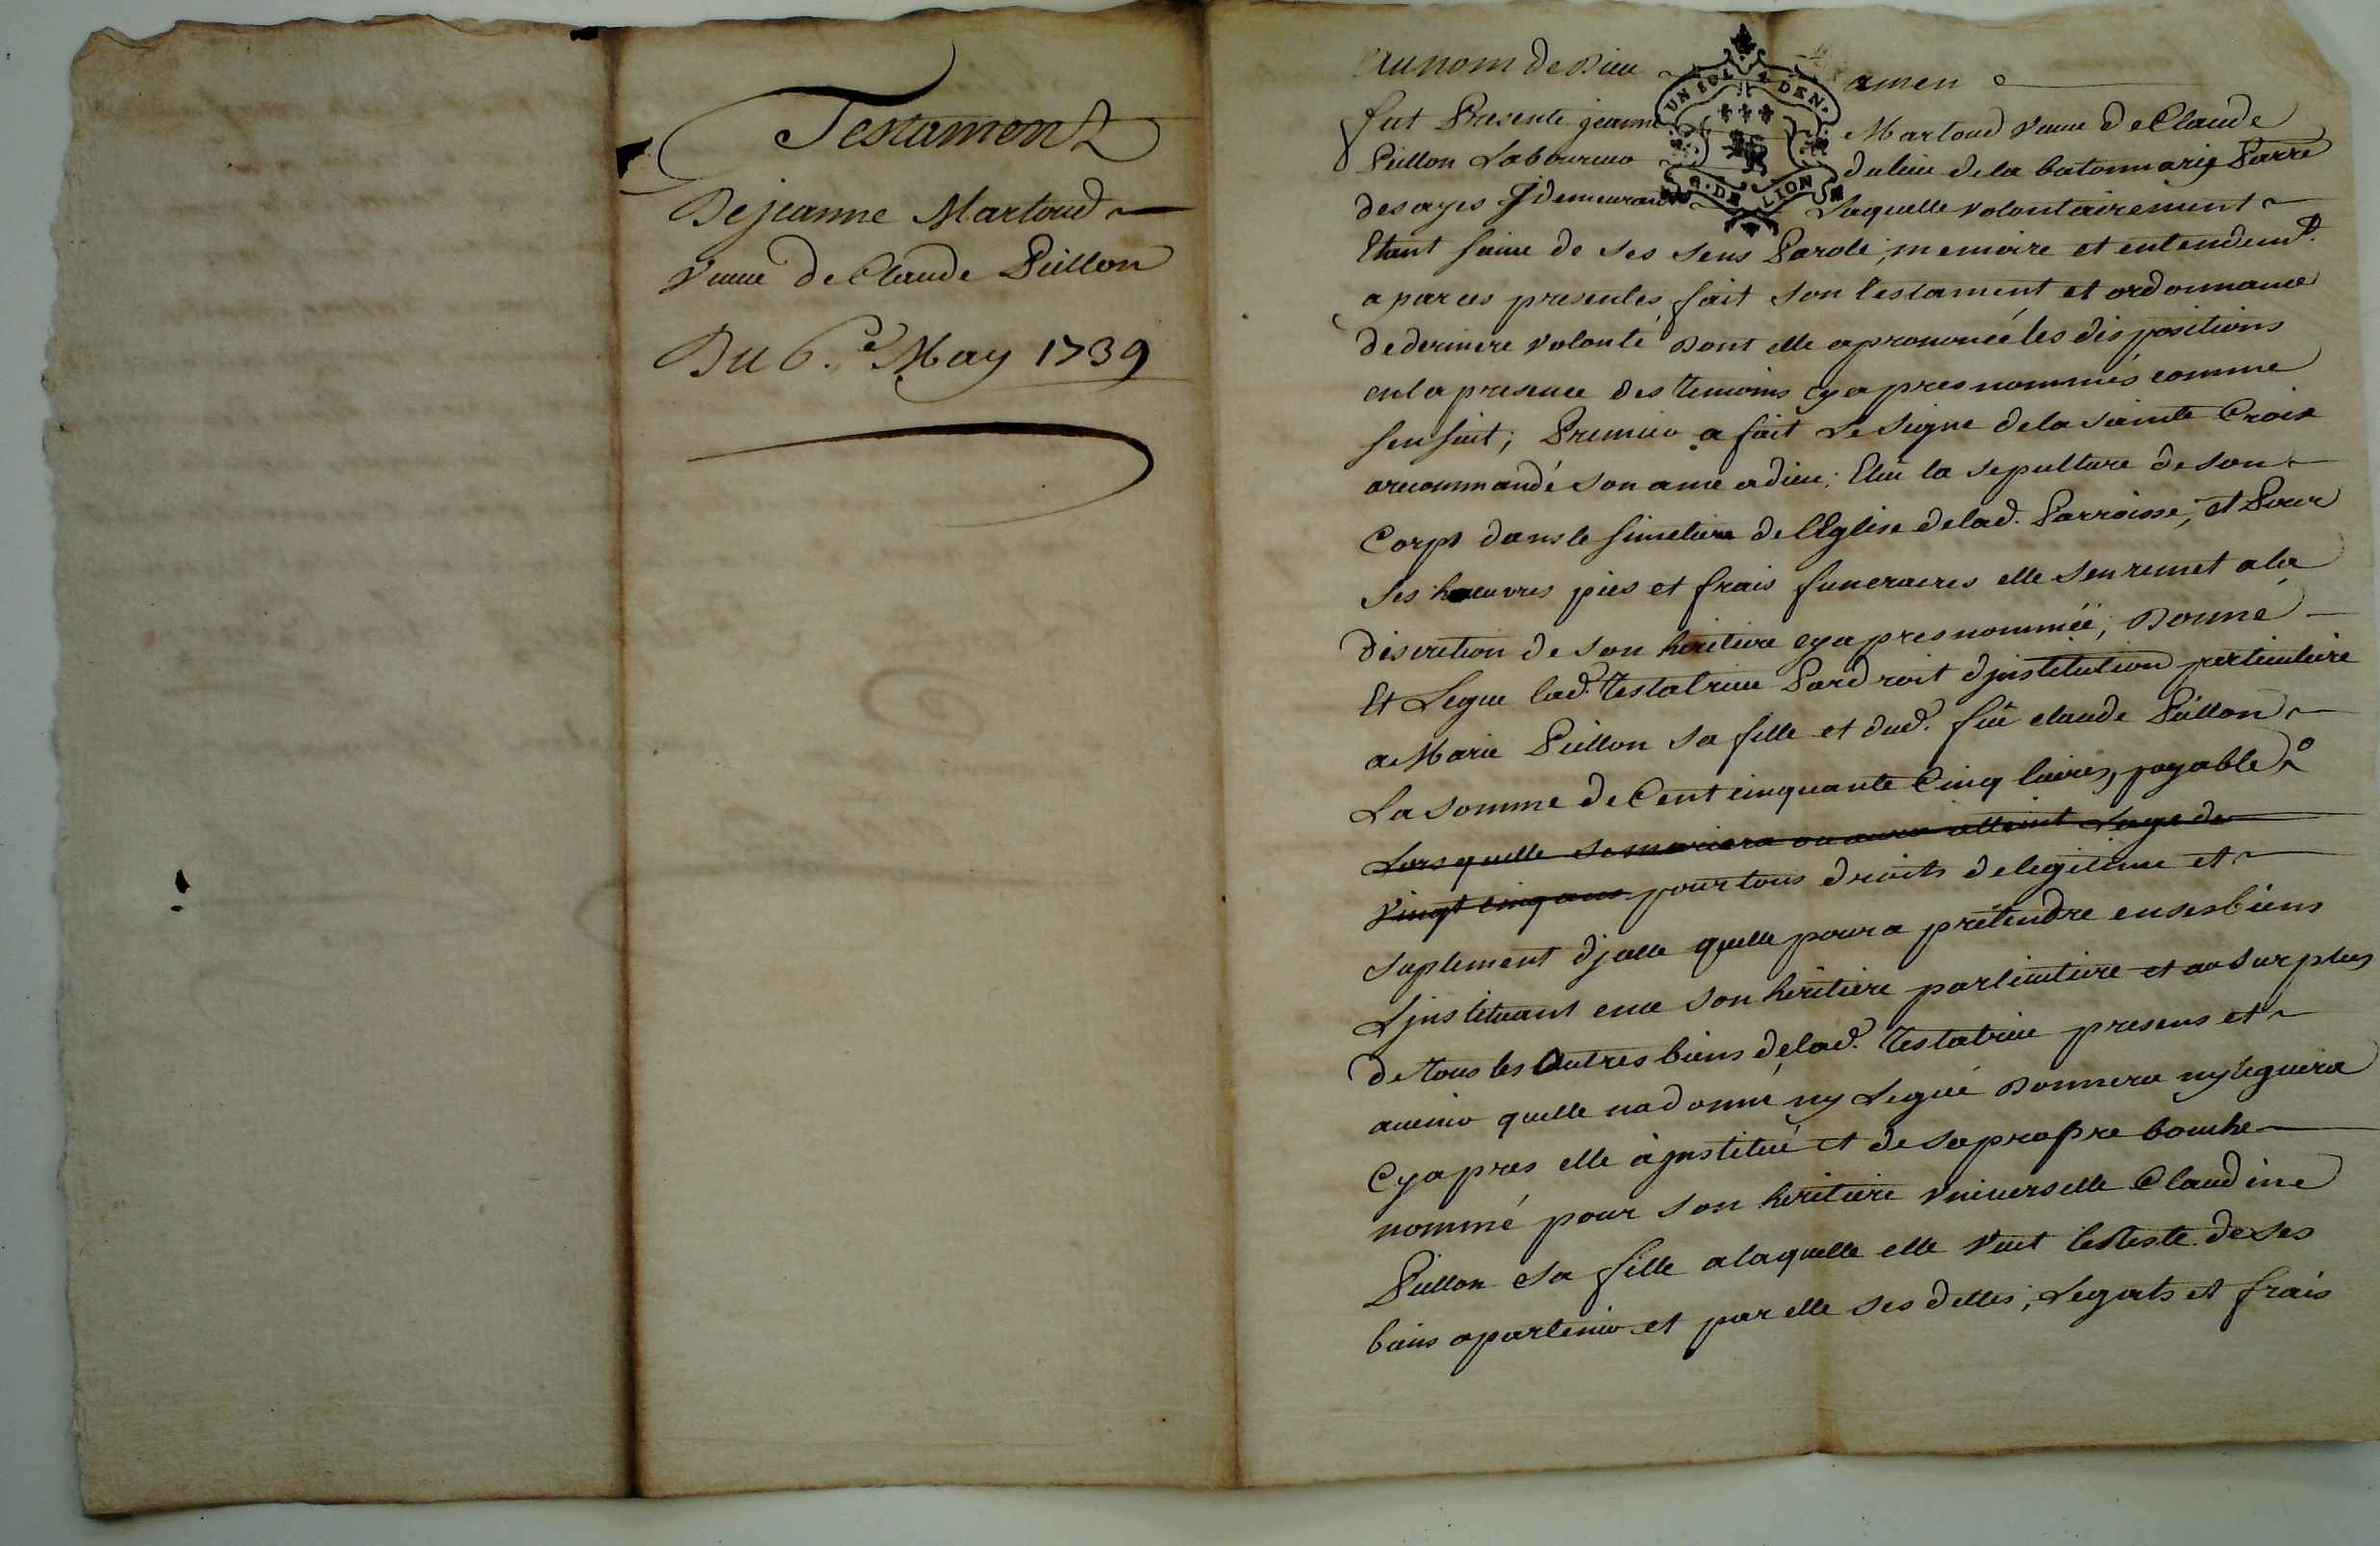 Testament
De jeanne Martoud
veuue de Claude Püllon
Du 6.e May 1739
Au nom de Dieu amen
UN SOL 4 DEN.
G. DE LION
fut Presente jeanne Martoud veuue de Claude
Püllon Laboureur du lieu de la batonnarie Parre
des ayes y demeurante Laquelle volontairement
Etant saine de ses sens Parole, memoire et entendemt.
a par ces presentes fait son testament et ordonnance
de derniere volonté Dont elle a prononcé les dispositions
en la presence des temoins cy apres nommés comme
sensuit; Premier a fait Le signe de la sainte Croix
a recommandé son ame a dieu; Elu la sepulture de son
Corps dans le simetiere de l'Eglise de lad. Parroisse, et Pour
ses heuvres pies et frais funeraires elle s'en remet a la
discretion de son heritiere cy apres nommée; Donne
Et Legue lad. testatrice Par droit djnstitution particuliere
a Marie Püllon sa fille et dud. füt claude Püllon
La somme de Cent cinquante Cinq livres, payable
Lors quelle se mariera ou aura atteint Lage de
vingt cinq ans pour tous droits de legitime et
suplement djcelle quelle poura prétendre en ses biens
Ljnstituant en ce son héritiere particuliere et au surplus
de tous les autres biens de lad. testatrice presens et
auenir quelle na donné ny Legué Donnera ny leguera
Cy apres elle a jnstitué et de sa propre bouche
nommé pour son héritiere vniuerselle Claudine
Püllon sa fille a laquelle elle veut le Reste de ses
biens apartenir et par elle ses dettes, Legats et frais